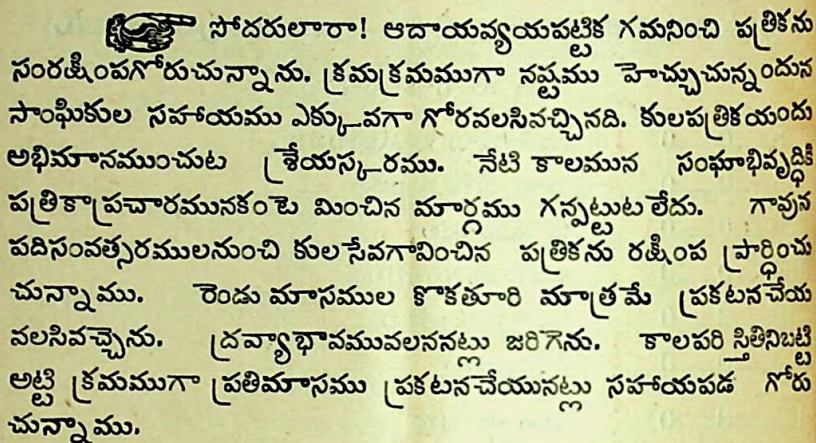 సోదరులారా! ఆదాయవ్యయపట్టిక గమనించి పత్రికను
సంరక్షింపగోరుచున్నాను. క్రమక్రమముగా నష్టము హెచ్చుచున్నందున
సాంఘికుల సహాయము ఎక్కువగా గోరవలసివచ్చినది. కులపత్రికయందు
అభిమానముంచుట శ్రేయస్కరము. నేటి కాలమున సంఘాభివృద్ధికి
పత్రికాప్రచారమునకంటె మించిన మార్గము గన్పట్టుట లేదు. గావున
పదిసంవత్సరములనుంచి కులసేవగావించిన పత్రికను రక్షింప ప్రార్థించు
చున్నాము. రెండు మాసముల కొకతూరి మాత్రమే ప్రకటనచేయ
వలసివచ్చెను. ద్రవ్యాభావమువలననట్లు జరిగెను. కాలపరి స్తితినిబట్టి
అట్టి క్రమముగా ప్రతిమాసము ప్రకటనచేయునట్లు సహాయపడ గోరు
చున్నాము.